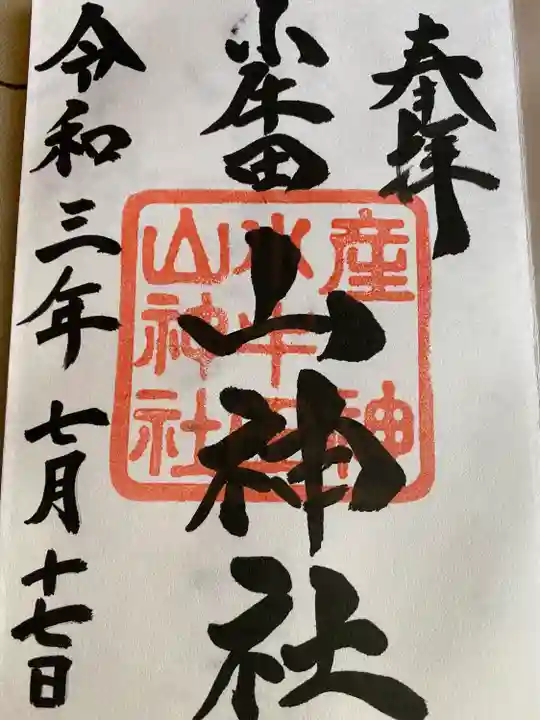 奉拝
小牛田
山神社
令和三年七月十七日
産神
小牛田
山神社